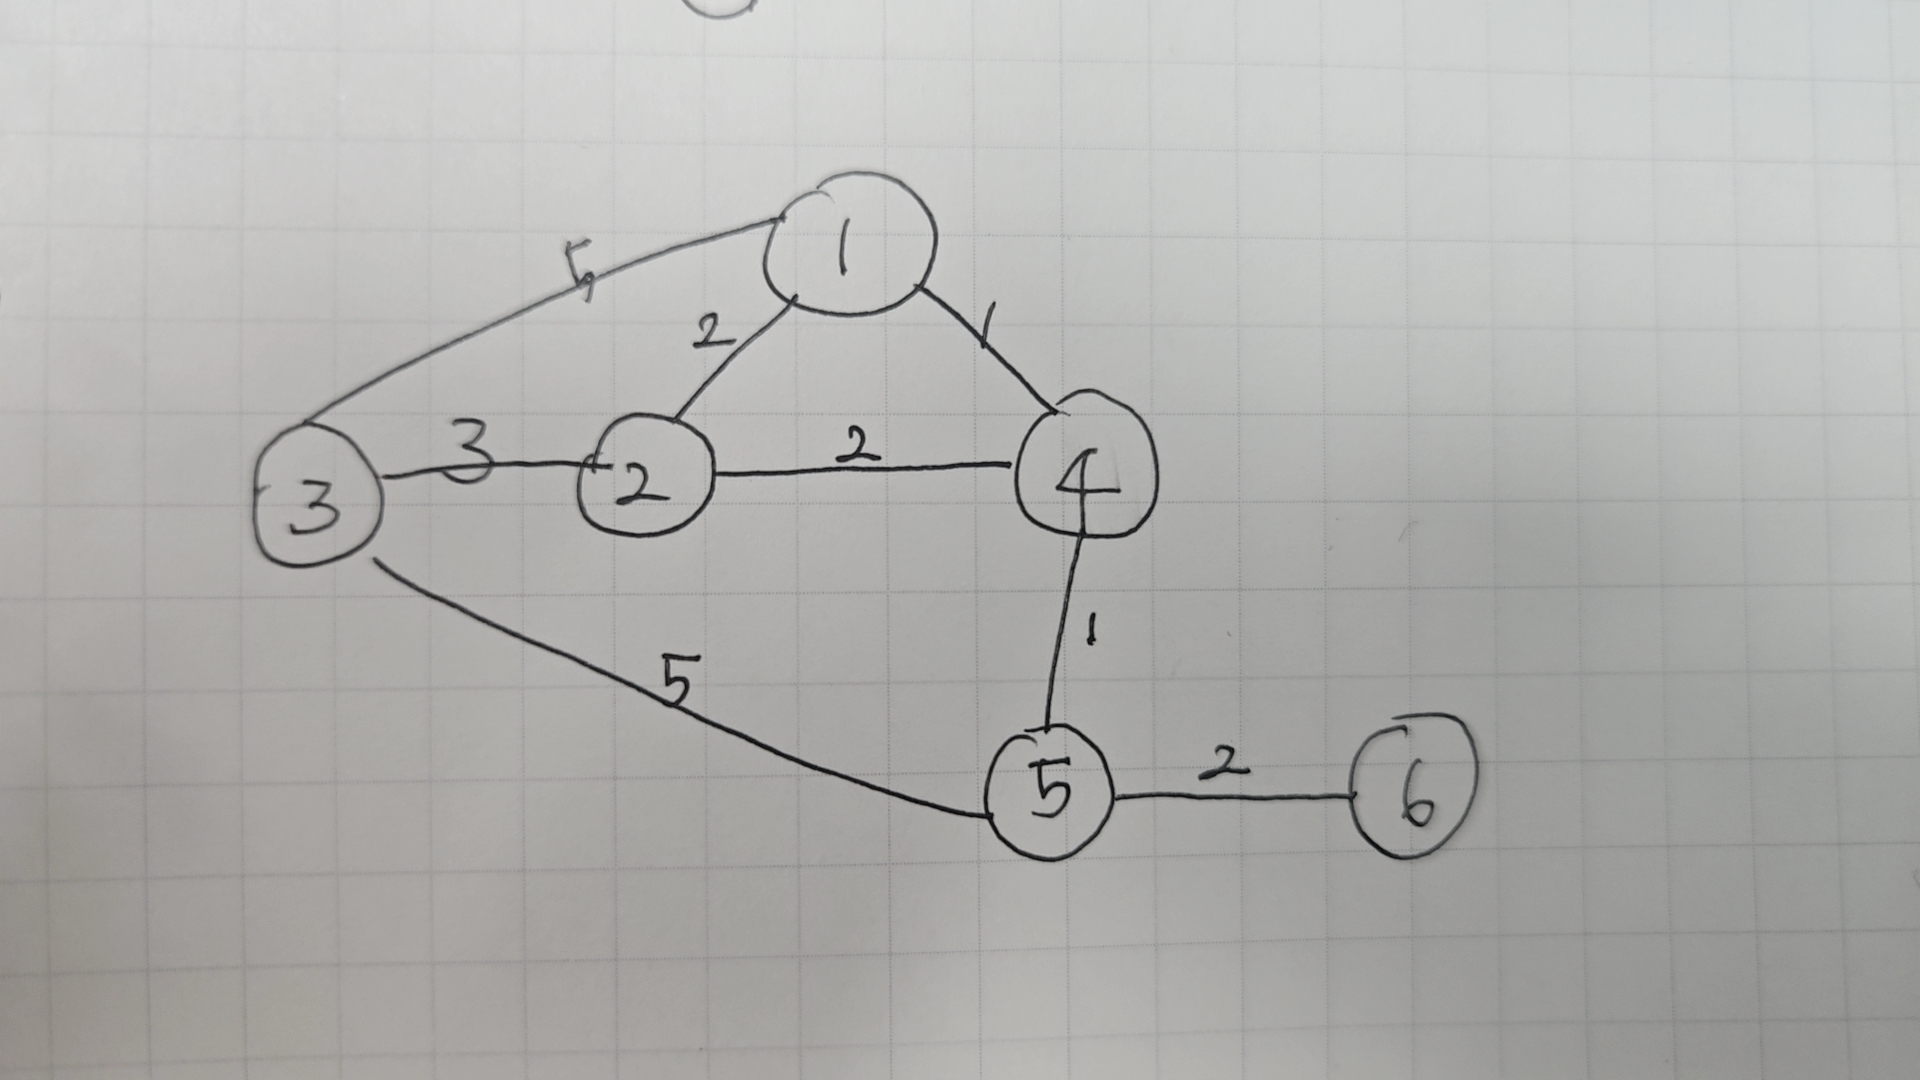 1
5
2
1
3
3
2
2
4
5
1
5
2
6